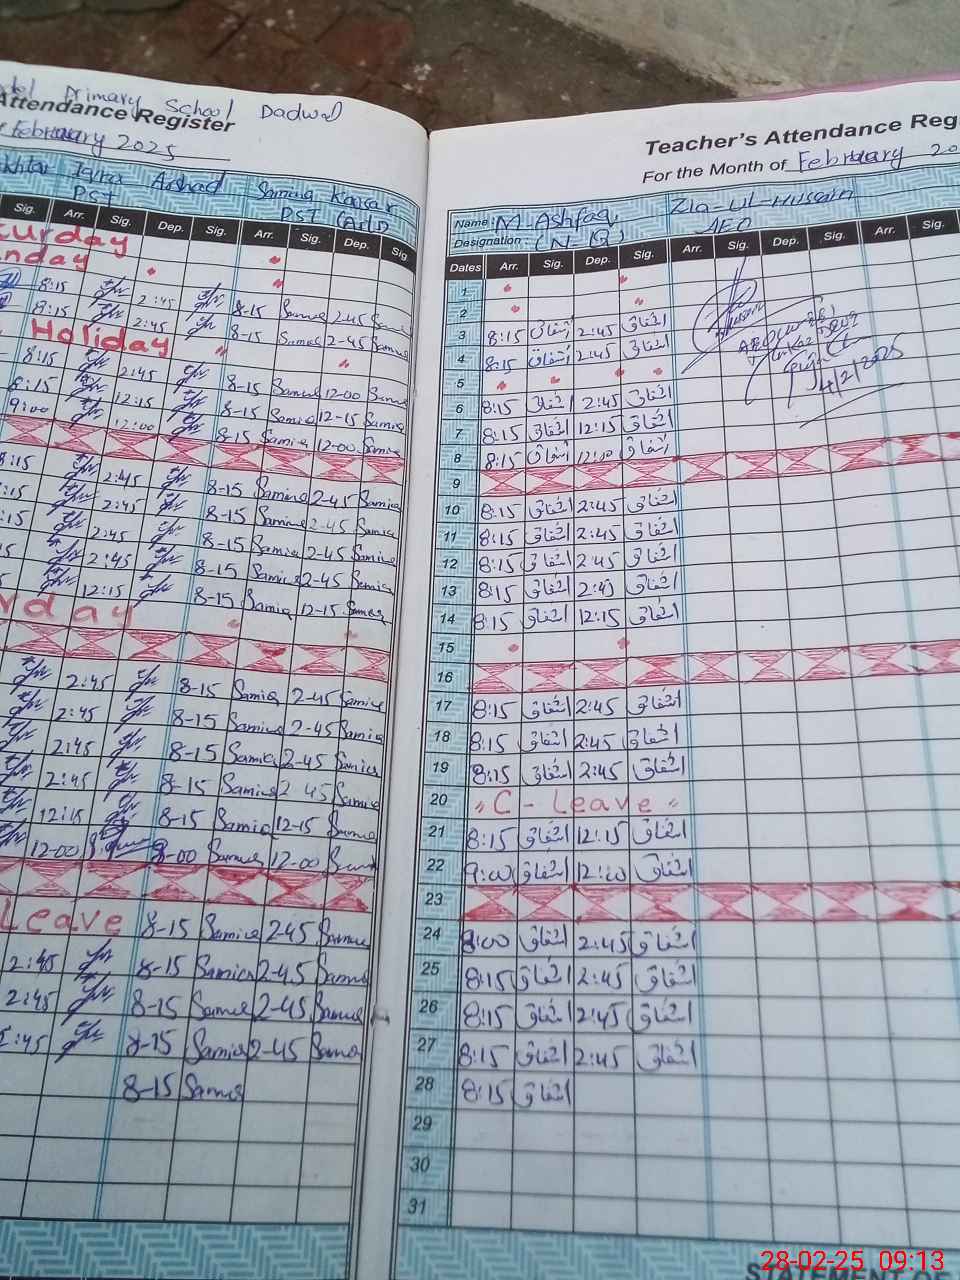 Primary School Dadwal
Attendance Register
February 2025
Iqra Arshad Samia Kausar
PST PST (Arts)
Sig. Arr. Sig. Dep. Sig. Arr. Sig. Dep. Sig
8:15 2:45 8-15 Samia 2-45 Samia
8:15 2:45 8-15 Samia 2-45 Samia
Holiday
8:15 2:45 8-15 Samia 12:00 Samia
8:15 12:15 8-15 Samia 12-15 Samia
9:00 12:00 8-15 Samia 12-00 Samia
8:15 2:45 8-15 Samia 2-45 Samia
:15 2:45 8-15 Samia 2-45 Samia
:15 2:45 8-15 Samia 2-45 Samia
2:45 8-15 Samia 2-45 Samia
12:15 8-15 Samia 12-15 Samia
2:45 8-15 Samia 2-45 Samia
2:45 8-15 Samia 2-45 Samia
2:45 8-15 Samia 2-45 Samia
2:45 8-15 Samia 2 45 Samia
12:15 8-15 Samia 12-15 Samia
12-00 9-00 Samia 12-00 Samia
Leave 8-15 Samia 245 Samia
2:45 8-15 Samia 2-45 Samia
2:45 8-15 Samia 2-45 Samia
2:45 8-15 Samia 2-45 Samia
8-15 Samia
Teacher's Attendance Reg
For the Month of February 20
Name: M. Ashfaq Zia-ul-Hussain
Designation (N-Q) AEO
Dates Arr. Sig. Dep. Sig. Arr. Sig. Dep. Sig. Arr. Sig.
1
2
3 8:15 اشفاق 2:45 اشفاق
4 8:15 اشفاق 2:45 اشفاق
4/2/2025
5
6 8:15 اشفاق 2:45 اشفاق
7 8:15 اشفاق 12:15 اشفاق
8 8:15 اشفاق 12:00 اشفاق
9
10 8:15 اشفاق 2:45 اشفاق
11 8:15 اشفاق 2:45 اشفاق
12 8:15 اشفاق 2:45 اشفاق
13 8:15 اشفاق 2:45 اشفاق
14 8:15 اشفاق 12:15 اشفاق
15
16
17 8:15 اشفاق 2:45 اشفاق
18 8:15 اشفاق 2:45 اشفاق
19 8:15 اشفاق 2:45 اشفاق
20 "C - Leave"
21 8:15 اشفاق 12:15 اشفاق
22 9:00 اشفاق 12:00 اشفاق
23
24 8:00 اشفاق 2:45 اشفاق
25 8:15 اشفاق 2:45 اشفاق
26 8:15 اشفاق 2:45 اشفاق
27 8:15 اشفاق 2:45 اشفاق
28 8:15 اشفاق
29
30
31
28-02-25 09:13